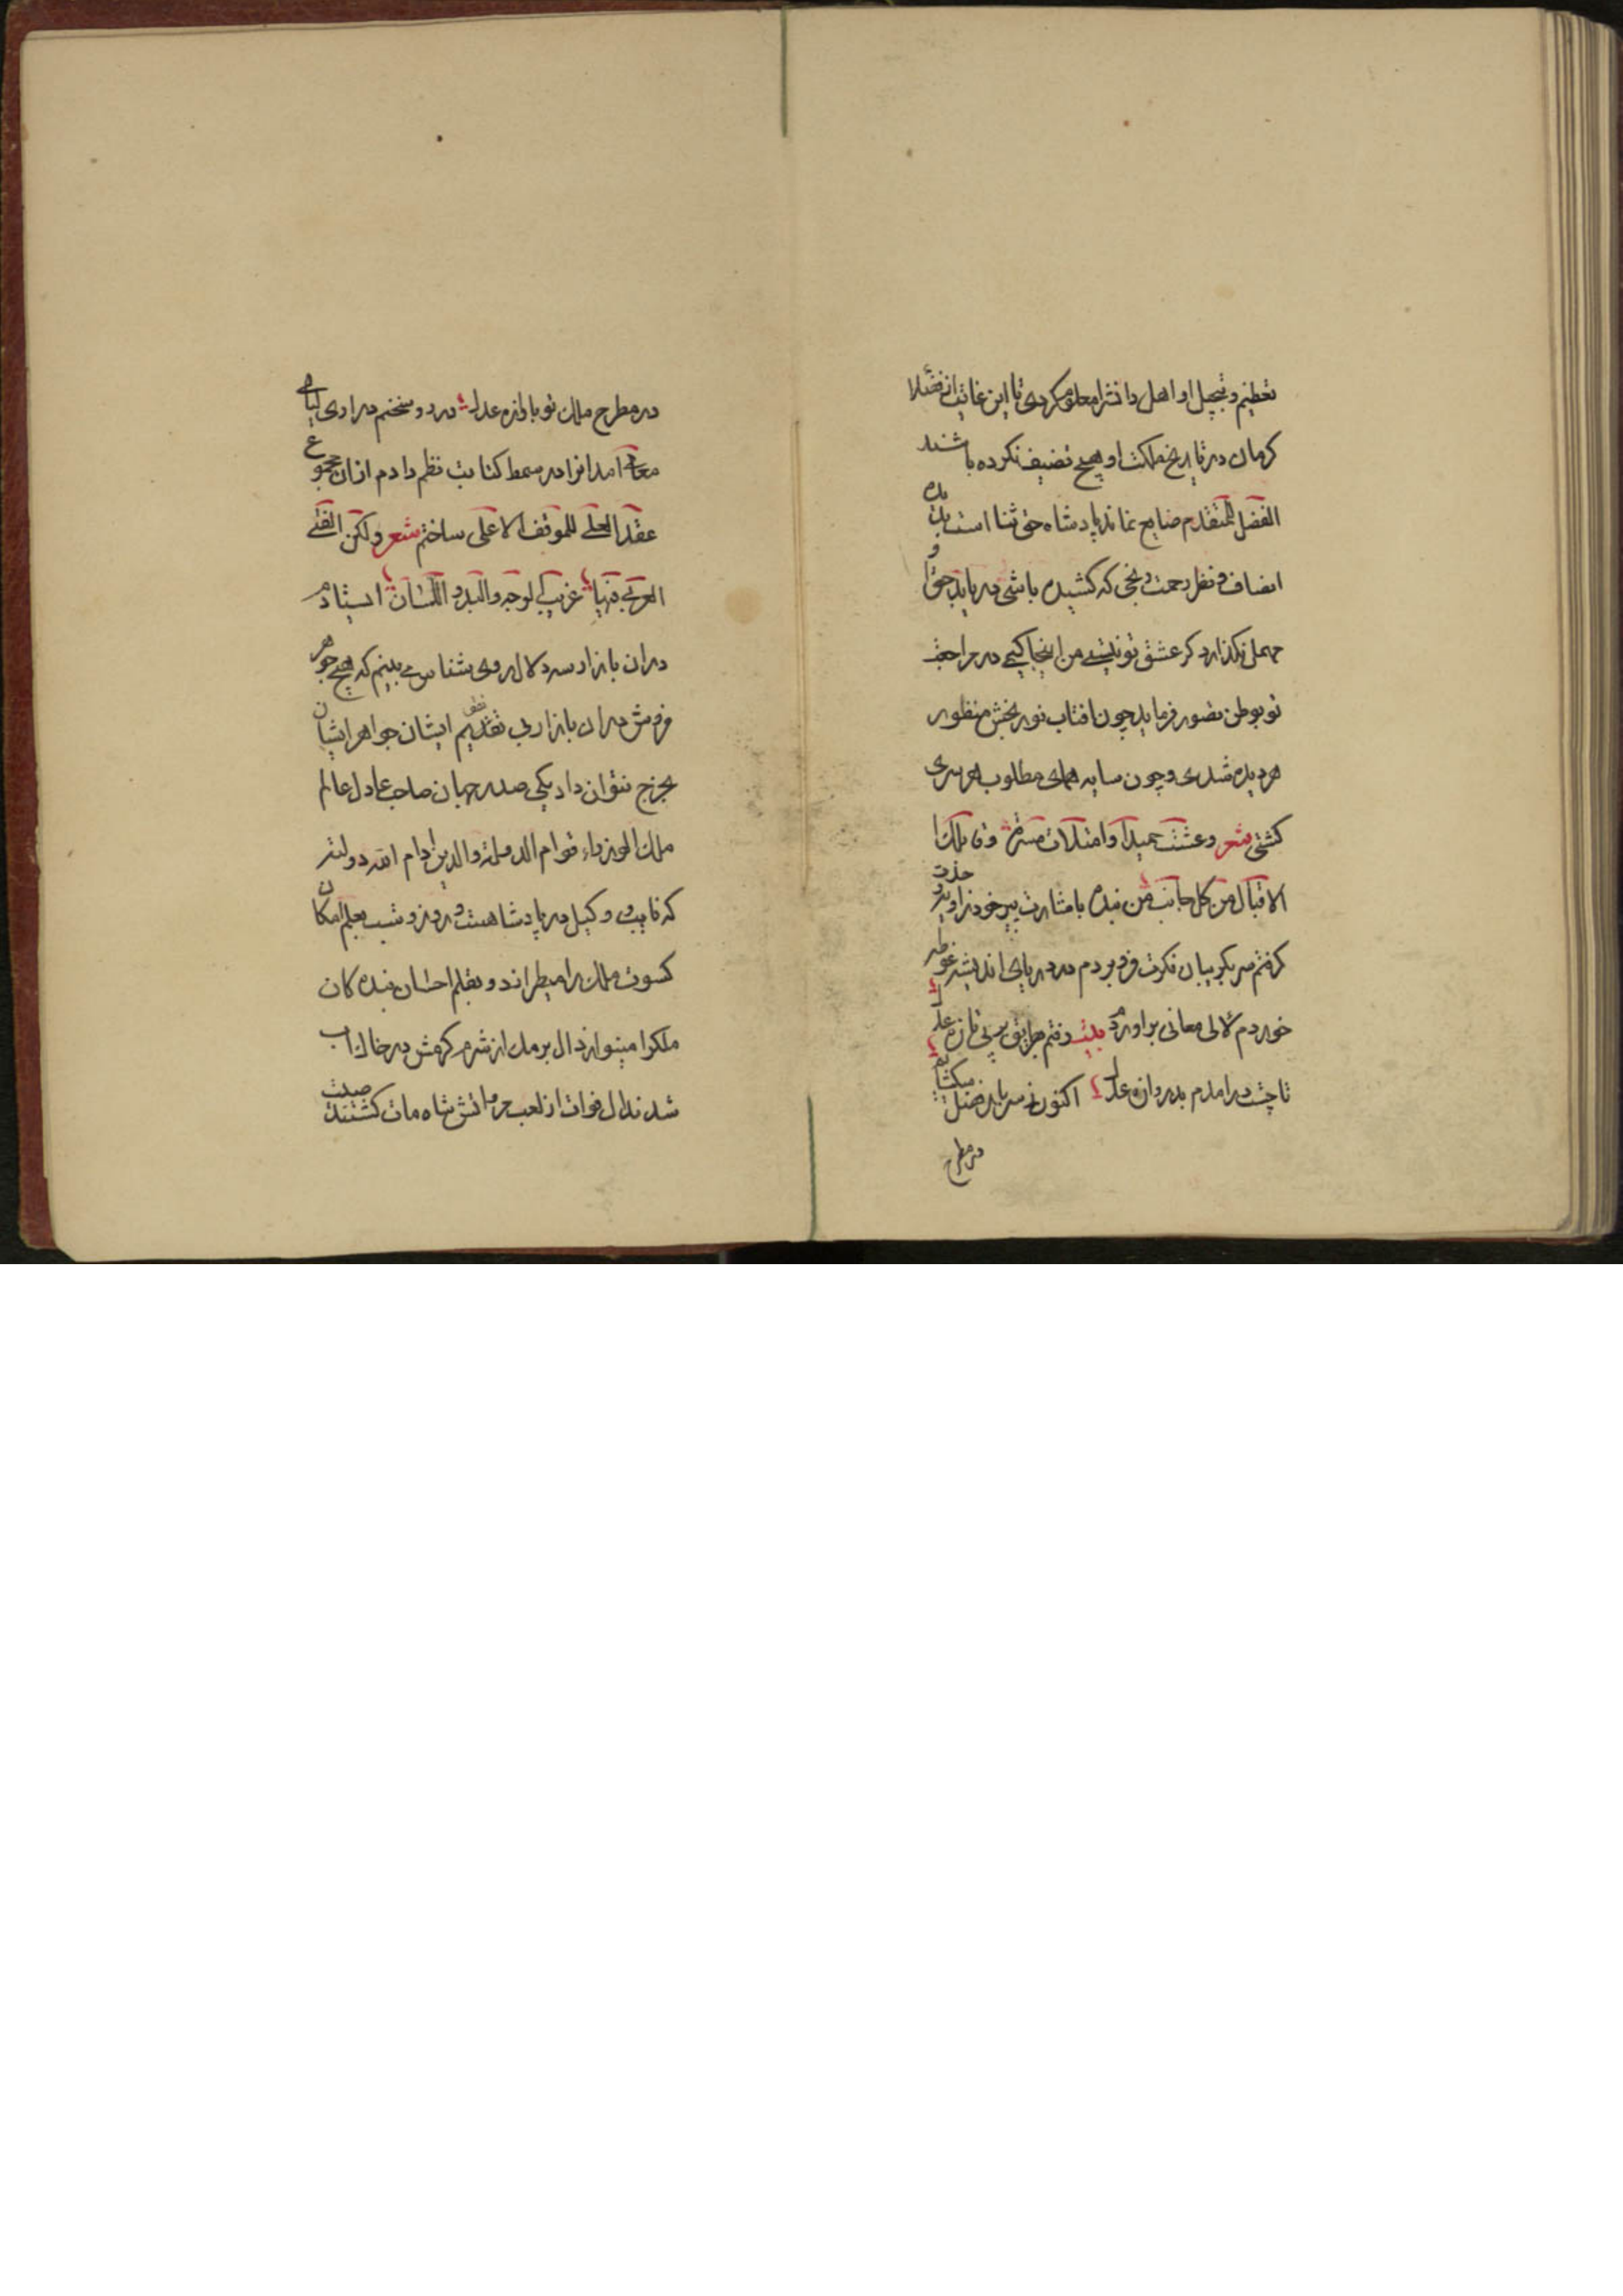 تعظیم و تبجیل او اهل دانش را معلوم کردی تا این غایت از فضلا
کرمان در تاریخ مملکت او هیچ تصنیف نکرده باشند
الفضل للمتقدم ضایع نماند پادشاه حق ثنا است بدیده
انصاف و نظر رحمت رنجی که کشیده باشی دریابد و حق ترا
مهمل نگذارد کر عشق تو نیستی من اینجا کیمی در مراجعت
تو بوطن تصور فرماید چون افتاب نور بخش منظور
هر دیده شدی و چون سایه همای مطلوب هر سری
کشتی شعر وعشت حمیدا وامتلات مسرة وفا بلک
الاقبال من کل جانب من بنده باشارت پیر خرد زاویه
کرفتم سر بکریبان فکرت فرو بردم در دریای اندیشه غوطه
خوردم لالی معانی براوردم بیت رفتم بطریق سی تازه عدل
تا چست درامدم بدروازه عدل اکنون ز سر بار فضل میکشایم
در مطرح
در مطرح ملک تو باوازه عدل درد و سخنم در اری لیالی
معانی امد انرا در سمط کتابت نظم دادم ازان مجموع
عقد العلی للموقف الاعلی ساختم شعر ولکن الفتی
العربی فیها غریب الوجه والید واللسان استادم
دران بازار سه دلال روی شناس می بینم که هیچ جوهر
فروش دران بازار بی تقدیم ایشان جواهر ایشان
بخرج نتوان داد یکی صدر جهان صاحب عادل عالم
ملک الوزراء قوام الدولة والدین ادام الله دولته
که نایب و وکیل در پادشاهست و روز و شب بعلم امکان
کسوت ملک را میطراند و بقلم احسان بندکان
ملکرا مینوازد ال برمک از شرم کرمش در خاک اب
شدند ال فرات از لعب حرمانش شاه مات کشتند